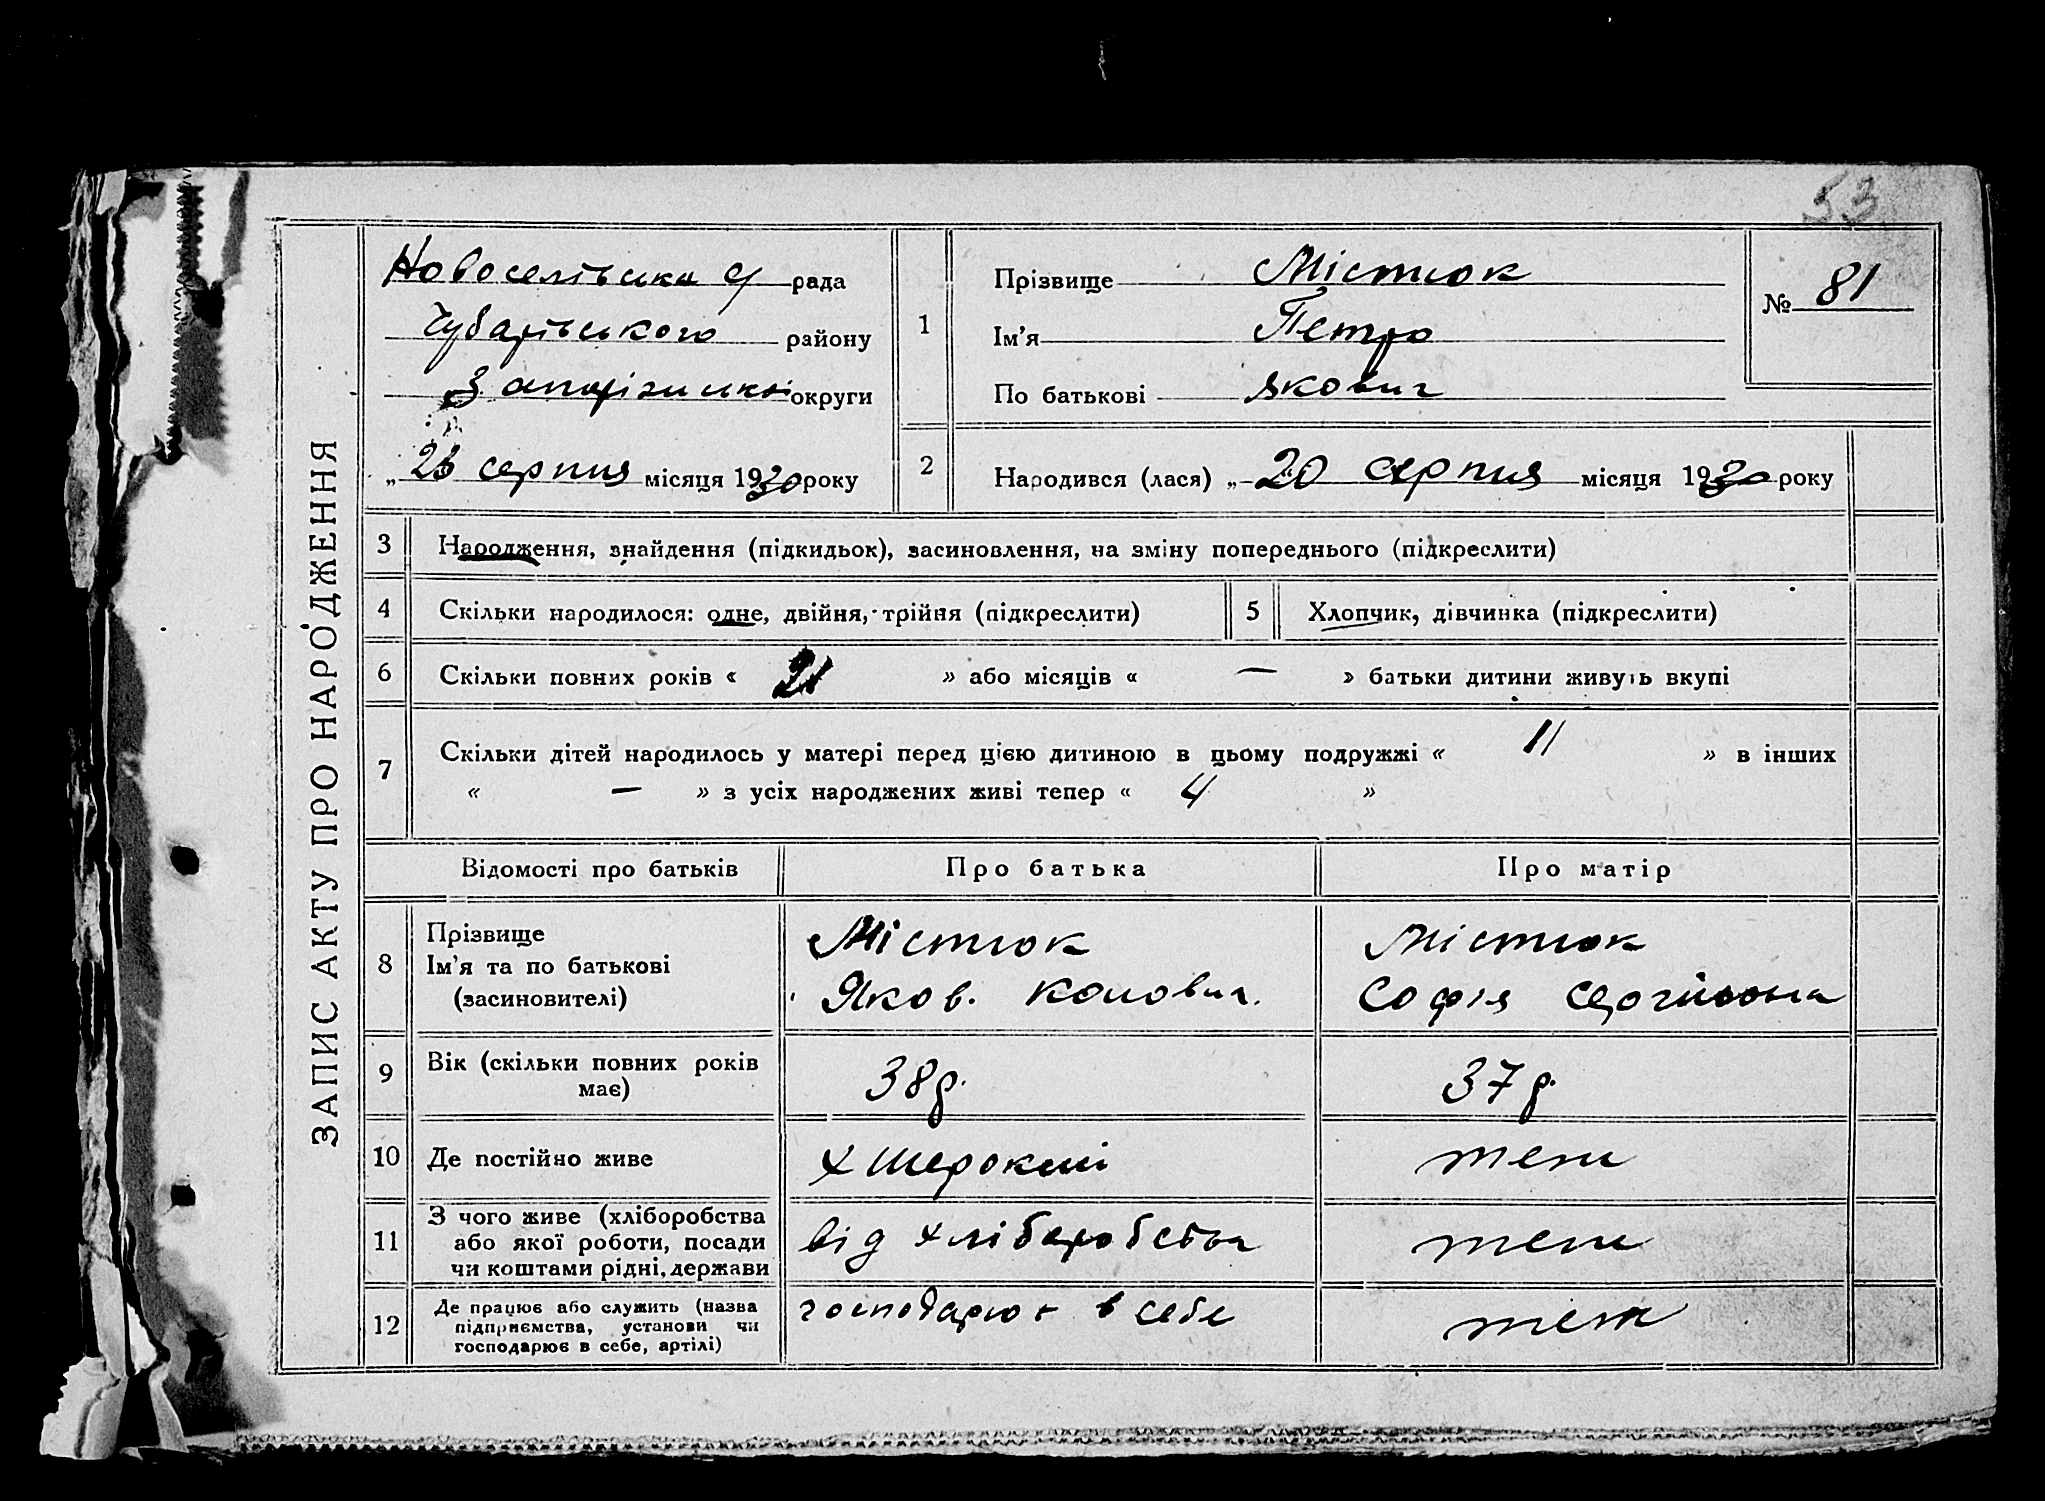 53
ЗАПИС АКТУ ПРО НАРОДЖЕННЯ
Новоселівська с/ рада
Чубарівського району
Запорізської округи
„ 23 серпня місяця 1930 року
1
Прізвище Містюк
Ім'я Петро
По батькові Якович
№ 81
2
Народився (лася) „ 20 серпня місяця 1930 року
3 Народження, знайдення (підкидьок), засиновлення, на зміну попереднього (підкреслити)
4 Скільки народилося: одне, двійня, трійня (підкреслити) 5 Хлопчик, дівчинка (підкреслити)
6 Скільки повних років « 21 » або місяців « — » батьки дитини живуть вкупі
7 Скільки дітей народилось у матері перед цією дитиною в цьому подружжі « 11 » в інших
« — » з усіх народжених живі тепер « 4 »
Відомості про батьків Про батька Про матір
8 Прізвище Містюк Містюк
Ім'я та по батькові
(засиновителі) Яков. Софія
9 Вік (скільки повних років має) 38 р. 37 р.
10 Де постійно живе х Широкий теж
11 З чого живе (хліборобства
або якої роботи, посади
чи коштами рідні, держави від хліборобства теж
12 Де працює або служить (назва
підприємства, установи чи
господарює в себе, артілі) господарює в себе теж